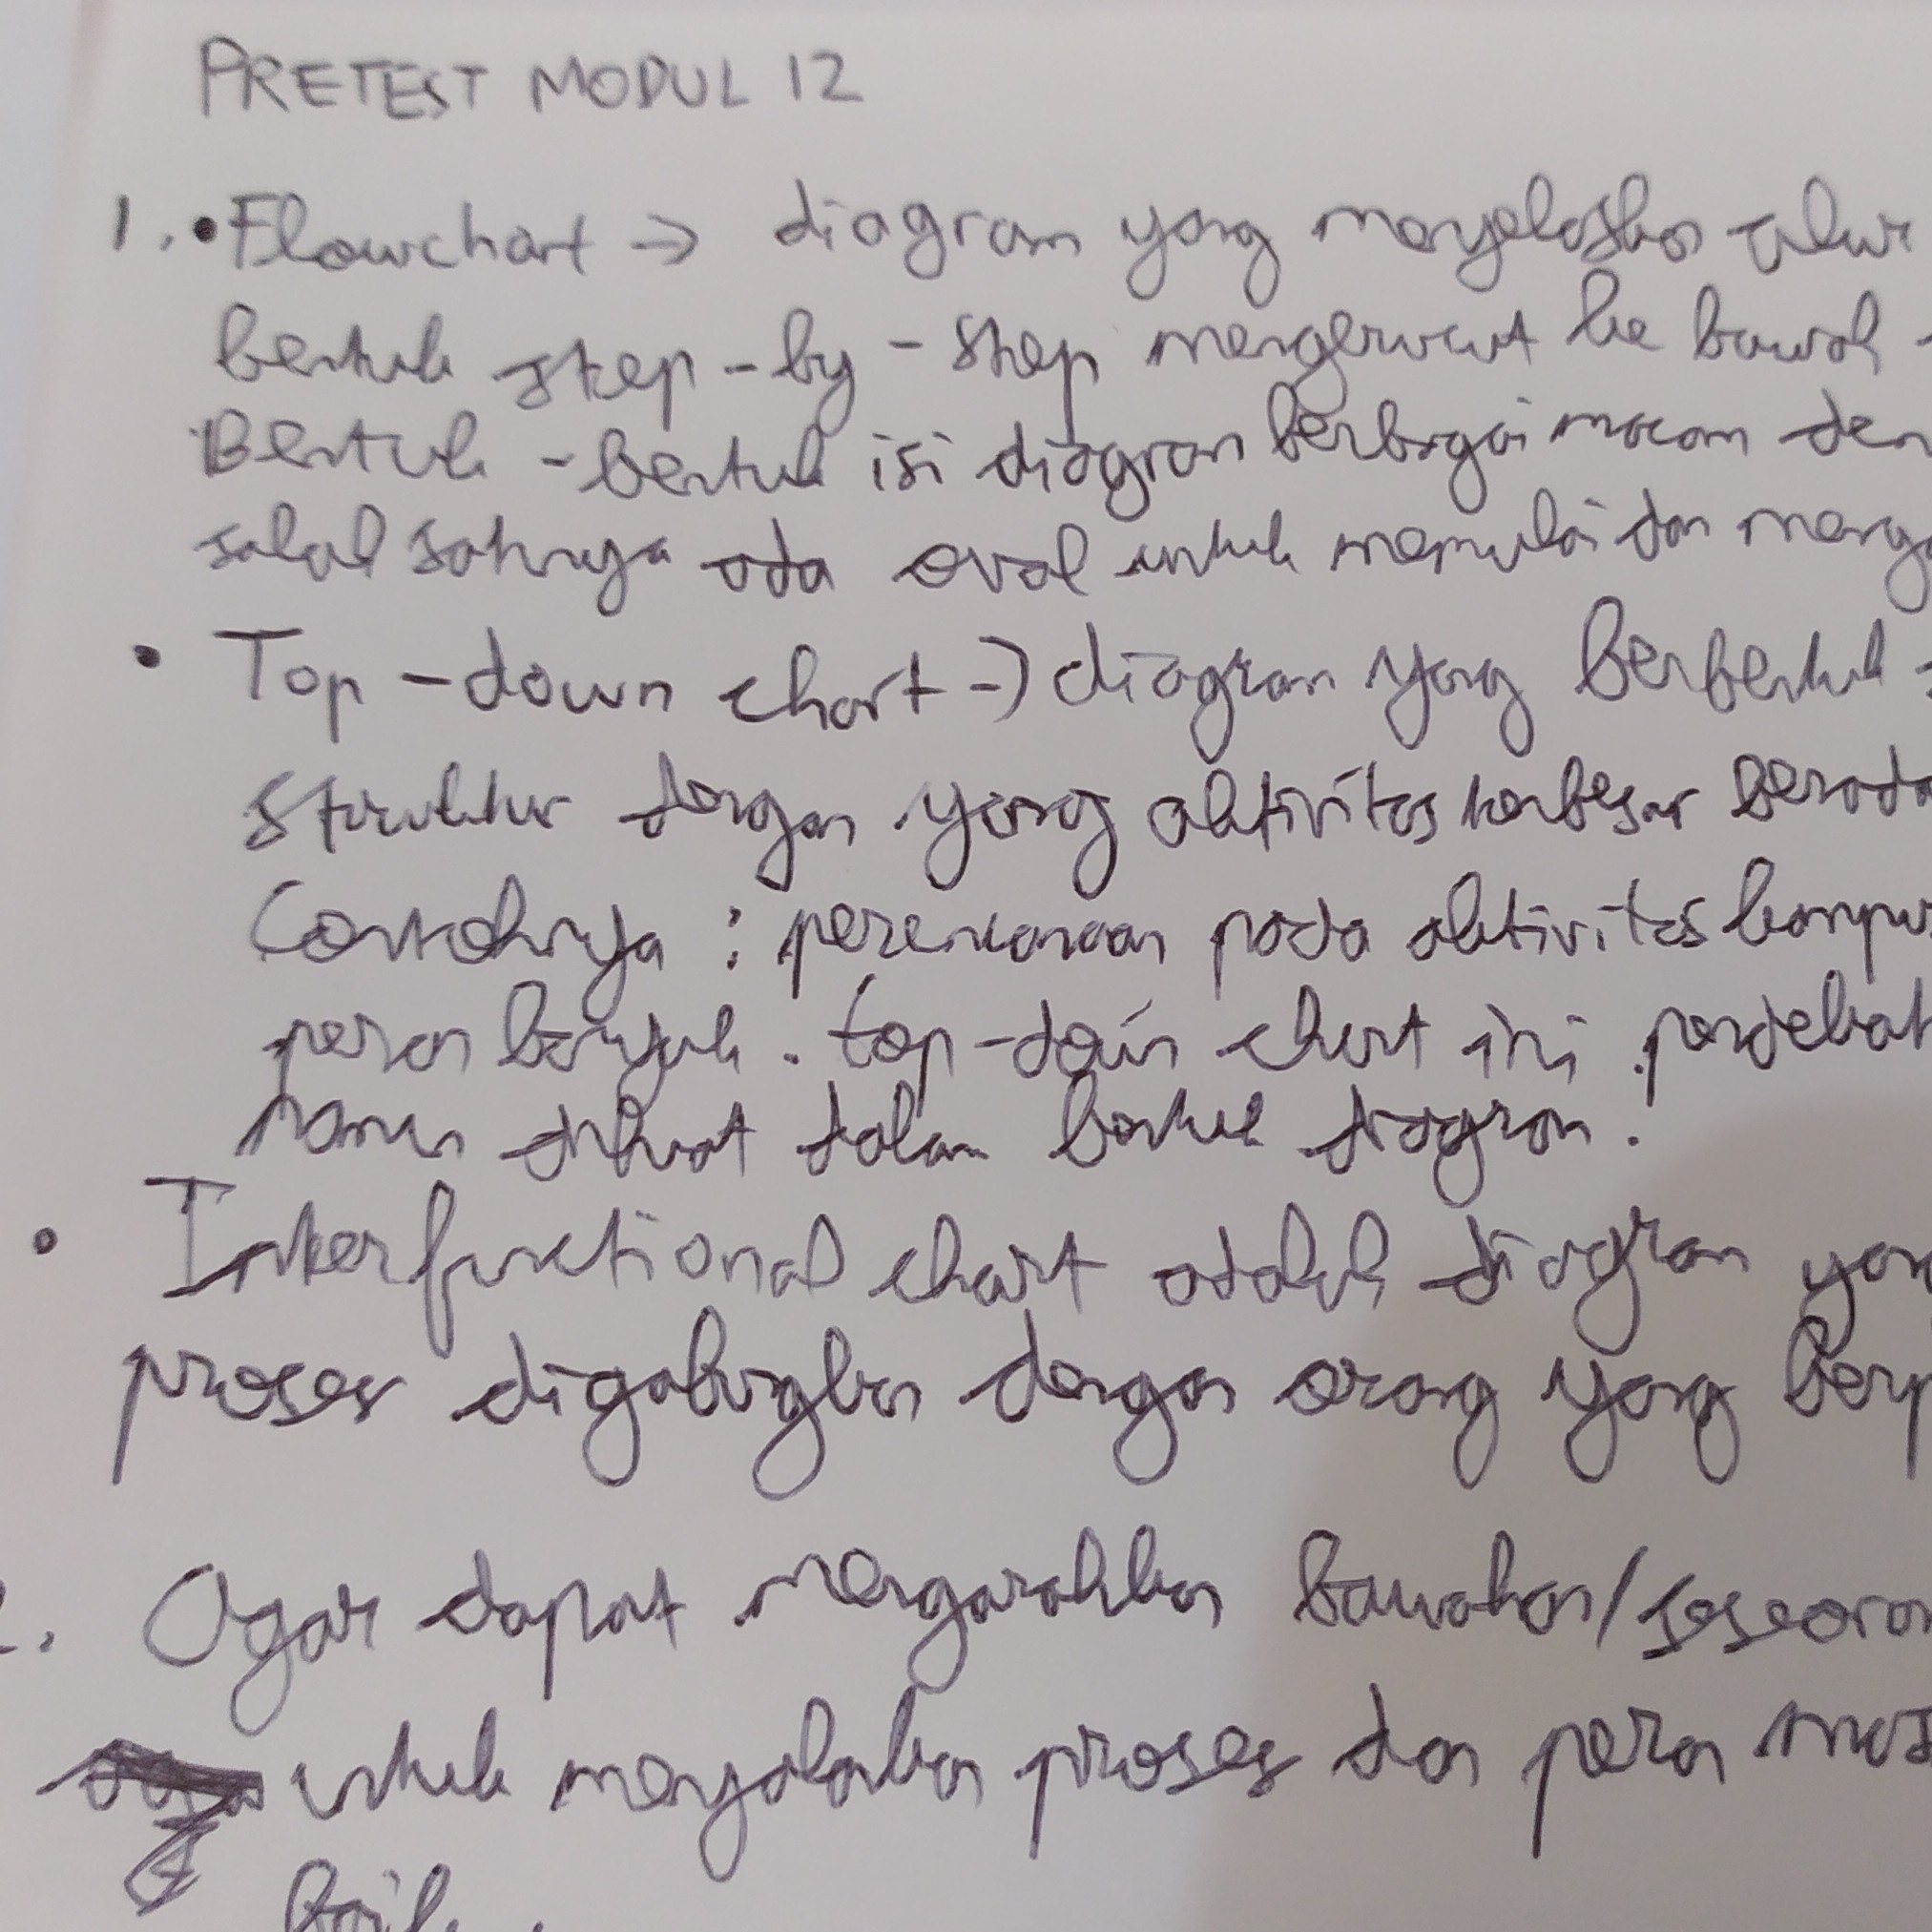 PRETEST MODUL 12
1. • Flowchart → diagram yang menjelaskan alur
bentuk step-by-step mengerucut ke bawah
Bentuk-bentuk isi diagram berbagai macam den
salah satunya ada oval untuk memulai dan meng
• Top-down chart → diagram yang berbentuk
struktur dengan yang aktivitas terbesar berada
Contohnya : perencanaan pada aktivitas kampus
peran banyak. top-down chart ini
namun dibuat dalam bentuk diagram.
• Interfunctional chart adalah diagram yan
proses digabungkan dengan orang yang berp
2. Agar dapat mengarahkan bawahan/seseoran
untuk menjalankan proses dan peran mas
baik.